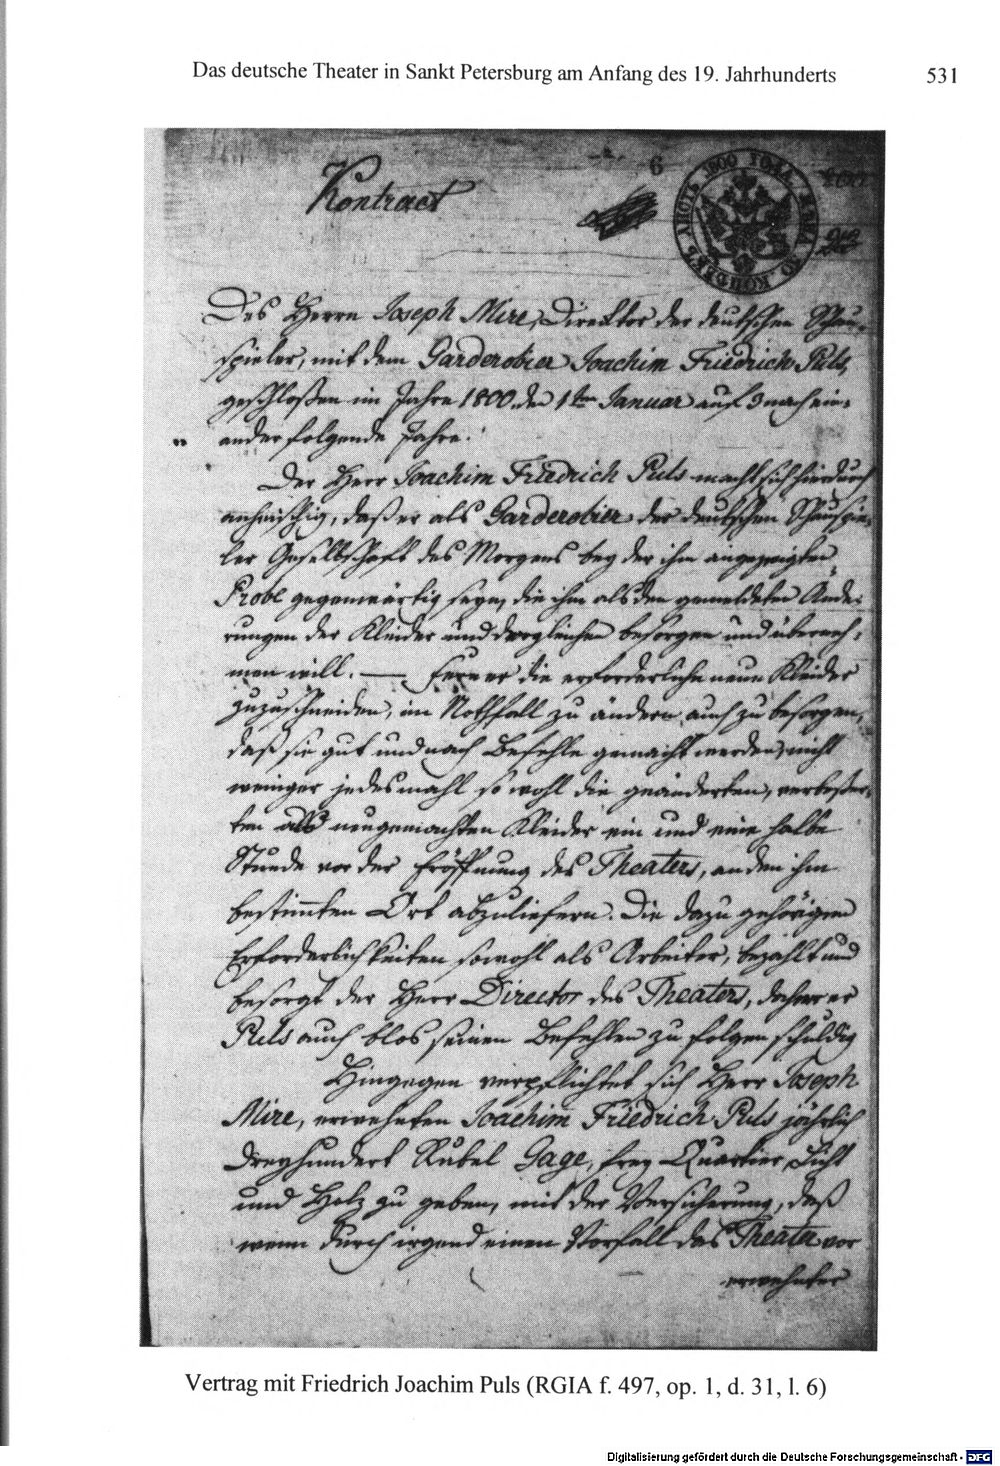 Das deutsche Theater in Sankt Petersburg am Anfang des 19. Jahrhunderts 531
6
Kontract
Des Herrn Joseph Mire, Direktor der deutschen Schau-
spieler, mit dem Garderobier Joachim Friedrich Puls,
geschloßen im Jahre 1800. den 1ten Januar auf 3 nach ein-
ander folgende Jahre.
Der Herr Joachim Friedrich Puls macht sich hierdurch
anheischig, daß er als Garderobier der deutschen Schauspie-
ler Gesellschaft des Morgens bey der ihm angezeigten
Probe gegenwärtig seyn, die ihm alsden gemeldeten Ände-
rungen der Kleider und dergleichen besorgen und überneh-
men will. — Ferner die erforderliche neue Kleider
zuzuschneiden, im Nothfall zu ändern, auch zu besorgen,
daß sie gut und nach Befehle gemacht werden, nicht
weniger jedesmahl so wohl die geänderten, verbeßer-
ten als neugemachten Kleider ein und eine halbe
Stunde vor der Eröffnung des Theaters, an den ihm
bestimmten Ort abzuliefern. Die dazu gehörigen
Erforderlichkeiten sowohl als Arbeiter, bezahlt und
besorgt der Herr Director des Theaters, daher er
Puls auch blos seinen Befehlen zu folgen schuldig
Hingegen verpflichtet sich Herr Joseph
Mire, erwehnten Joachim Friedrich Puls jährlich
dreyhundert Rubel Gage, frey Quartier, Licht
und Holz zu geben, mit der Versicherung, daß
wenn durch irgend einen Vorfall das Theater vor
erwehnter
Vertrag mit Friedrich Joachim Puls (RGIA f. 497, op. 1, d. 31, l. 6)
Digitalisierung gefördert durch die Deutsche Forschungsgemeinschaft - DFG